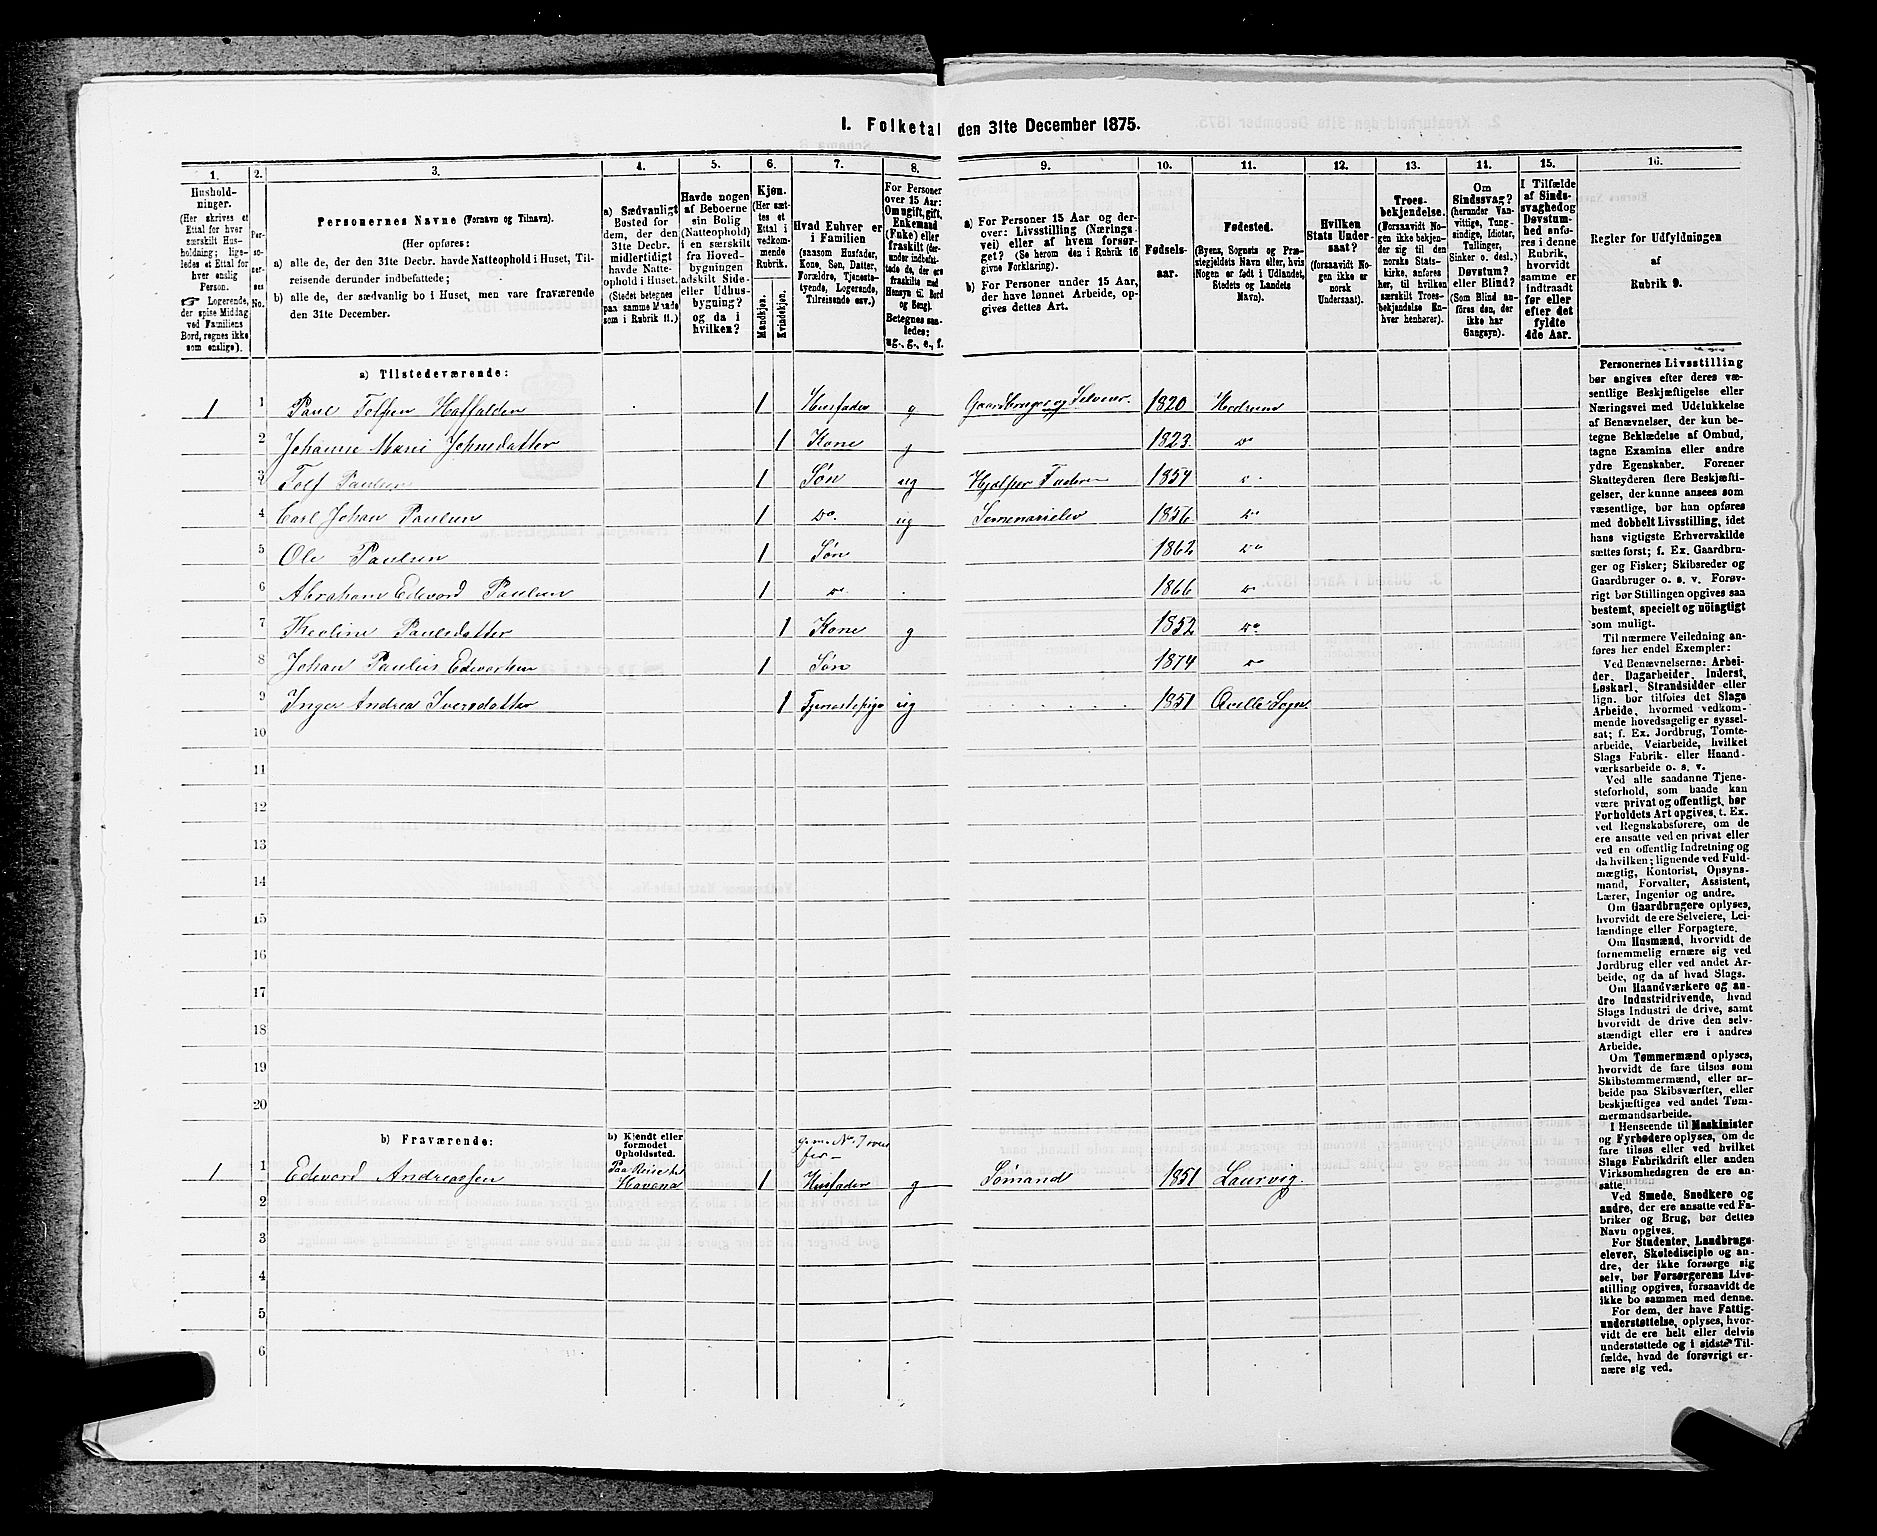 I. Folketal den 31te December 1875.
1. 2. 3. 4. 5. 6. 7. 8. 9. 10. 11. 12. 13. 14. 15. 16.
Hushold-
ninger.
(Her skrives et
Ettal for hver
særskilt Hus-
holdning; lige-
ledes et Ettal for
hver enslig
Person.
Logerende,
der spise Middag
ved Familiens
Bord, regnes ikke
som enslige).
Per-
so-
ner-
nes
No.
Personernes Navne (Fornavn og Tilnavn).
(Her opføres:
a) alle de, der den 31te Decbr. havde Natteophold i Huset, Til-
reisende derunder indbefattede;
b) alle de, der sædvanlig bo i Huset, men vare fraværende
den 31te December.
a) Sædvanligt
Bosted for
dem, der den
31te Decbr.
midlertidigt
havde Natte-
ophold i Huset.
(Stedet betegnes
paa samme Maade
som i Rubrik 11.)
Havde nogen
af Beboerne
sin Bolig
(Natteophold)
i en særskilt
fra Hoved-
bygningen
adskilt Side-
eller Udhus-
bygning?
og da i
hvilken?
Kjøn.
(Her sæt-
tes et
Ettal i
vedkom-
mende
Rubrik.
Mandkjøn.
Kvindekjøn.
Hvad Enhver er
i Familien
(saasom Husfader,
Kone, Søn, Datter,
Forældre, Tjeneste-
tyende, Logerende,
Tilreisende osv.)
For Personer
over 15 Aar:
Om ugift, gift,
Enkemand
(Enke) eller
fraskilt (der-
under indbefat-
tede de, der ere
fraskilte med
Hensyn til Bord
og Seng).
Betegnes saa-
ledes:
ug., g., e., f.
a) For Personer 15 Aar og der-
over: Livsstilling (Nærings-
vei) eller af hvem forsør-
get? (Se herom den i Rubrik 16
givne Forklaring).
b) For Personer under 15 Aar,
der have lønnet Arbeide, op-
gives dettes Art.
Fødsels-
aar.
Fødested.
(Byens, Sognets og Præ-
stegjeldets Navn eller, hvis
Nogen er født i Udlandet,
Stedets og Landets
Navn).
Hvilken
Stats Under-
saat?
(forsaavidt No-
gen ikke er
norsk
Undersaat).
Troes-
bekjendelse.
(Forsaavidt No-
gen ikke bekjen-
der sig til den
norske Stats-
kirke, anføres
her, til hvilken
særskilt Troes-
bekjendelse En-
hver henhører).
Om
Sindssvag?
(herunder Van-
vittige, Tung-
sindige, Idioter,
Tullinger,
Sinker o. desl.)
Døvstum?
eller Blind?
(Som Blind an-
føres den, der
ikke har
Gangsyn).
I Tilfælde
af Sinds-
svaghed og
Døvstum-
hed anfø-
res i denne
Rubrik,
hvorvidt
samme er
indtraadt
før eller
efter det
fyldte
4de Aar.
Regler for Udfyldningen
af
Rubrik 9.
a) Tilstedeværende:
1 1 Paul Tolfsen Haffalden 1 Husfader g Gaardbruger og Selveier 1820 Hedrum
2 Johanne Marie Johnsdatter 1 Kone g 1823 do
3 Tolf Paulsen 1 Søn ug Hjælper Faderen 1854 do
4 Carl Johan Paulsen 1 do. ug Semenarielev 1856 do
5 Ole Paulsen 1 Søn 1862 do
6 Abraham Edevard Paulsen 1 do. 1866 do
7 Theoline Paulsdatter 1 Kone g 1852 do
8 Johan Paulius Edevartsen 1 Søn 1874 do
9 Inger Andrea Iversdatter 1 Tjenestepige ug 1851 Qvelle Sogn
10
11
12
13
14
15
16
17
18
19
20
b) Fraværende:
b) Kjendt eller
formodet
Opholdssted.
No. 7 over
1 1 Edevard Andreassen Paa Reise til Havana 1 Husfader g Sømand 1851 Laurvig.
2
3
4
5
6
Personernes Livsstilling
bør angives efter deres væ-
sentlige Beskjæftigelse eller
Næringsvei med Udelukkelse
af Benævnelser, der kun be-
tegne Beklædelse af Ombud,
tagne Examina eller andre
ydre Egenskaber. Forener
Skatteyderen flere Beskjæfti-
gelser, der kunne ansees som
væsentlige, bør han opføres
med dobbelt Livsstilling, idet
hans vigtigste Erhvervskilde
sættes først; f. Ex. Gaardbru-
ger og Fisker; Skibsreder og
Gaardbruger o. s. v. Forøv-
rigt bør Stillingen opgives saa
bestemt, specielt og nöiagtigt
som muligt.
Til nærmere Veiledning an-
føres her endel Exempler:
Ved Benævnelserne: Arbei-
der, Dagarbeider, Inderst,
Løskarl, Strandsidder eller
lign. bør tilføies det Slags
Arbeide, hvormed vedkom-
mende hovedsagelig er syssel-
sat; f. Ex. Jordbrug, Tomte-
arbeide, Veiarbeide, hvilket
Slags Fabrik- eller Haand-
værksarbeide o. s. v.
Ved alle saadanne Tjene-
steforhold, som baade kan
være privat og offentligt, bør
Forholdets Art opgives, t. Ex.
ved Regnskabsførere, om de
ere ansatte ved en privat eller
ved en offentlig Indretning og
da hvilken; lignende ved Fuld-
mægtig, Kontorist, Opsyns-
mand, Forvalter, Assistent,
Lærer, Ingeniør og andre.
Om Gaardbrugere oplyses,
hvorvidt de ere Selveiere, Lei-
lændinge eller Forpagtere.
Om Husmænd, hvorvidt de
fornemmelig ernære sig ved
Jordbrug eller ved andet Ar-
beide, og da af hvad Slags.
Om Haandværkere og an-
dre Industridrivende, hvad
Slags Industri de drive, samt
hvorvidt de drive den selv-
stændigt eller ere i andres
Arbeide.
Om Tømmermænd oplyses,
hvorvidt de fare tilsøs som
Skibstømmermænd, eller ar-
beide paa Skibsværfter, eller
beskjæftiges ved andet Tøm-
mermandsarbeide.
I Henseende til Maskinister
og Fyrbødere oplyses, om de
fare tilsøs eller ved hvilket
Slags Fabrikdrift eller anden
Virksomhedsgren de ere an-
satte.
Ved Smede, Snedkere og
andre, der ere ansatte ved Fa-
briker og Brug, bør dettes
Navn opgives.
For Studenter, Landbrugs-
elever, Skoledisciple og an-
dre, der ikke forsørge sig
selv, bør Forsørgerens Livs-
stilling opgives, forsaavidt de
ikke bo sammen med denne.
For dem, der have Fattig-
understøttelse, oplyses, hvor-
vidt de ere helt eller delvis
understøttede og i sidste Til-
fælde, hvad de forøvrigt er-
nære sig ved.